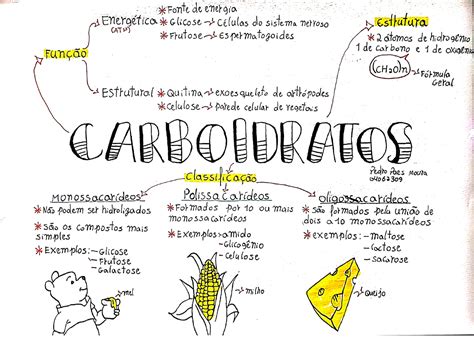 Função
Energética
(ATP)
* Fonte de energia
* Glicose → Células do sistema nervoso
* Frutose → Espermatozoides
Estrutural
* Quitina → exoesqueleto de artrópodes
* Celulose → Parede celular de vegetais
Estrutura
* 2 átomos de hidrogênio
1 de carbono e 1 de oxigênio
(CH2O)n → Fórmula
Geral
CARBOIDRATOS
Pedro Paes Moura
Classificação
Monossacarídeos
* Não podem ser hidroligados
* São os compostos mais
simples
* Exemplos: - Glicose
- Frutose
- Galactose
mel
Polissacarídeos
* Formados por 10 ou mais
monossacarídeos
* Exemplos → amido
Glicogênio
Celulose
milho
Oligossacarídeos
* são formados pela união de
dois a 10 monossacarídeos
* exemplos: - maltose
- lactose
- sacarose
Queijo